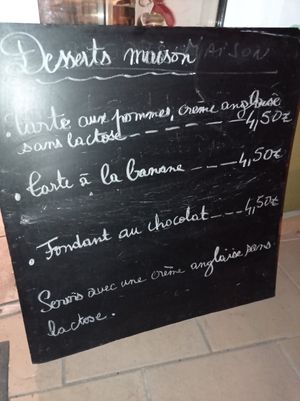 Desserts maison MAISON
• Tarte aux pommes, crème anglaise
sans lactose ---- 4,50€
• Tarte à la banane ---- 4,50€
• Fondant au chocolat --- 4,50€
Servis avec une crème anglaise sans
lactose.